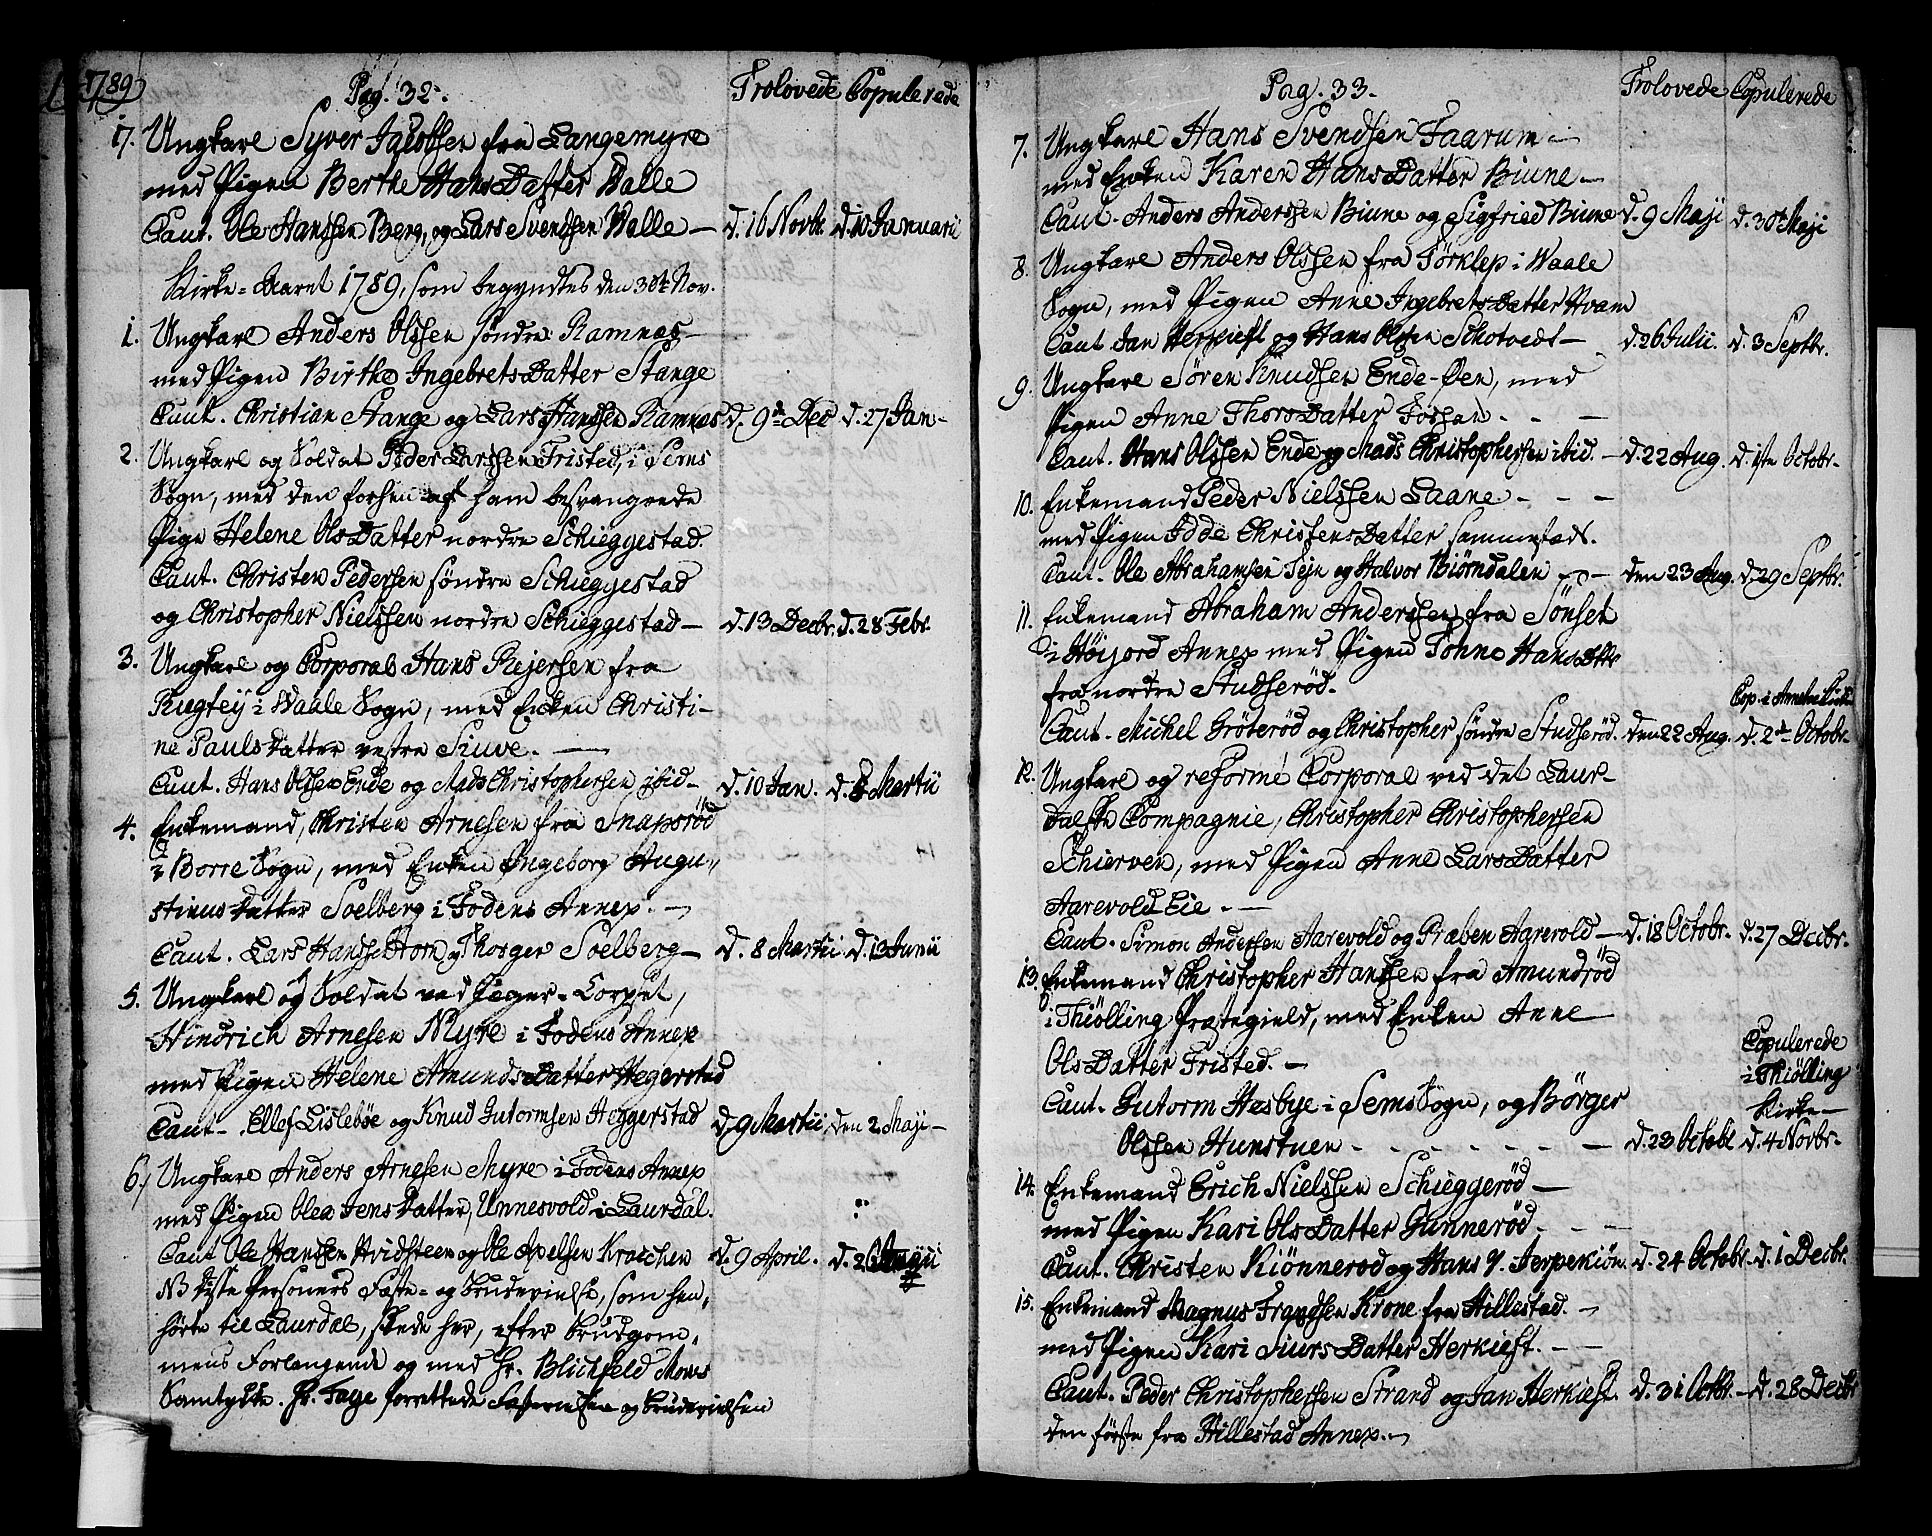 1789
Pag. 32. Trolovede Copulerede
17. Ungkarl Syver Jacobsen fra Langemyre
med Pigen Berthe HansDatter Valle
Caut. Ole Hanssen Berg, og Lars Svendsen Walle — d. 16 Novbr. d. 10 Januarii
Kirke-Aaret 1789, som begyndtes den 30te Nov.
1. Ungkarl Anders Olssen søndre Ramnes —
med Pigen Birthe IngebretsDatter Stange
Caut. Christian Stange og Lars Hanssen Ramnes d. 9de Dec d. 27 Jan —
2. Ungkarl og Soldat Peder Larssen Fristed, i Sems
Sogn, med den forhen af ham besvangrede
Pige Helene OlsDatter nordre Schieggestad.
Caut. Christen Pedersen søndre Schieggestad
og Christopher Nielssen nordre Schieggestad — d. 13 Decbr. d. 28 Febr.
3. Ungkarl og Corporal Hans Rejersen fra
i Waale Sogn, med Enken Christi-
ne PaulsDatter vestre Siuve. —
Caut. Hans Olssen Ende og Mads Christophersen, ibid — d. 10 Jan. d. Martii
4. Enkemand, Christen Arnesen fra Snapsrød
i Borre Sogn, med Enken Ingeborg Augu„
stinusDatter Soelberg i Fodens Annex. —
Caut. Lars Hanssen Hom og Thorger Soelberg — d. 8 Martii d. 13 Junii
5. Ungkarl og Soldat ved Jæger-Corpset,
Hindrich Arnesen Myre i Fodens Annex
med Pigen Helene AmundsDatter Hegerstad
Caut. Ellef Lislebøe og Knud Gutormsen Heggerstad d. 9 Martii, den 2 Maji —
6. Ungkarl Anders Arnesen Myre i Fodens Annex
med Pigen Olea JensDatter, Unnesvold i Laurdal.
Caut Ole Hanssen Hvidsteen og Ole Axelsen Kraechen d. 9 April. d. 26
NB disse Personers Fæste- og Brudevielse, som hen„
hørte til Laurdal, skede her, efter Brudgom„
mens Forlangende og med Hr. Blichfeld Moss
Samtykke. Hr. Faye forrettede Fæstevielsen og Brudevielsen
Pag. 33. Trolovede Copulerede
7. Ungkarl Hans Svendsen Faarum —
med Enken Karen HansDatter Biune —
Caut. Anders Anderssen Biune og Sigfried Biune d. 9 Maji d. 30te Maji
8. Ungkarl Anders Olssen fra Tørklep i Waale
Sogn, med Pigen Anne IngebretsDatter Hvam
Caut Jan Herkieft og Hans Olssen Schotvedt — d. 26 Julii. d. 3 Septbr.
9. Ungkarl Søren Knudssen Ende-Øen, med
Pigen Anne ThorsDatter Fossan. - —
Caut. Hans Olssen Ende og Mads Christophersen ibid. — d. 22 Aug. d. 1ste Octobr.
10. Enkemand Peder Nielssen Laane - - —
med Pigen Idde ChristensDatter sammestæds.
Caut. Ole Abrahamsen Sejn og Halvor Biørndalen — den 23 Aug. d. 29 Septbr.
11. Enkemand Abraham Anderssen fra Sønset
i Høijord Annex med Pigen Tohne HansDttr
fra nordre Studserød. Cop. i
Caut. Michel Grøterød og Christopher søndre Studserød. den 22 Aug. d. 2de Octobr.
12. Ungkarl og reformé Corporal ved det Laur-
dalske Compagnie, Christopher Christophersen
Schierven, med Pigen Anne LarsDatter
Aarevold Eie. —
Caut. Simon Andersen Aarevold og Præben Aarevold — d. 18 Octobr. d. 27 Decbr.
13. Enkemand Christopher Hanssen fra Amundrød
i Thiølling Præstegield, med Enken Anne
OlsDatter Fristed. — Copulerede
i Thiølling
Caut. Gutorm Hesbye i Sems Sogn, og Børger Kirke —
Olssen Hunstuen - - - - - — d. 23 Octobr d. 4 Novbr.
14. Enkemand Erich Nielssen Schieggerød —
med Pigen Kari OlsDatter Gunnerød. - - —
Caut. Christen Kiønnerød og Hans V. Jerpekiøn d. 24 Octobr. d. 1 Decbr.
15. Enkemand Magnus Frandsen Krone fra Hillestad. —
med Pigen Kari SiursDatter Herkieft. - —
Caut. Peder Christophersen Strand og Jan Herkieft. d. 31 Octbr. — d. 28 Decbr
den første fra Hillestad Annex. —